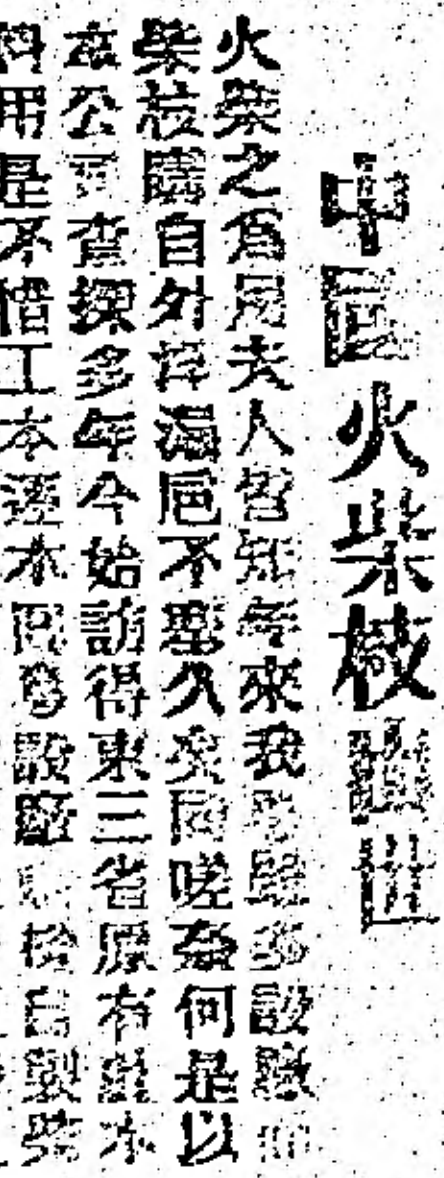 中國火柴枝出世
火柴之爲用夫人皆知年來我國雖多設廠而
柴枝購自外洋漏巵不塞久矣同嗟奈何是以
本公司查探多年今始訪得東三省原有此木
料用是不惜工本運木回粵設廠自製柴